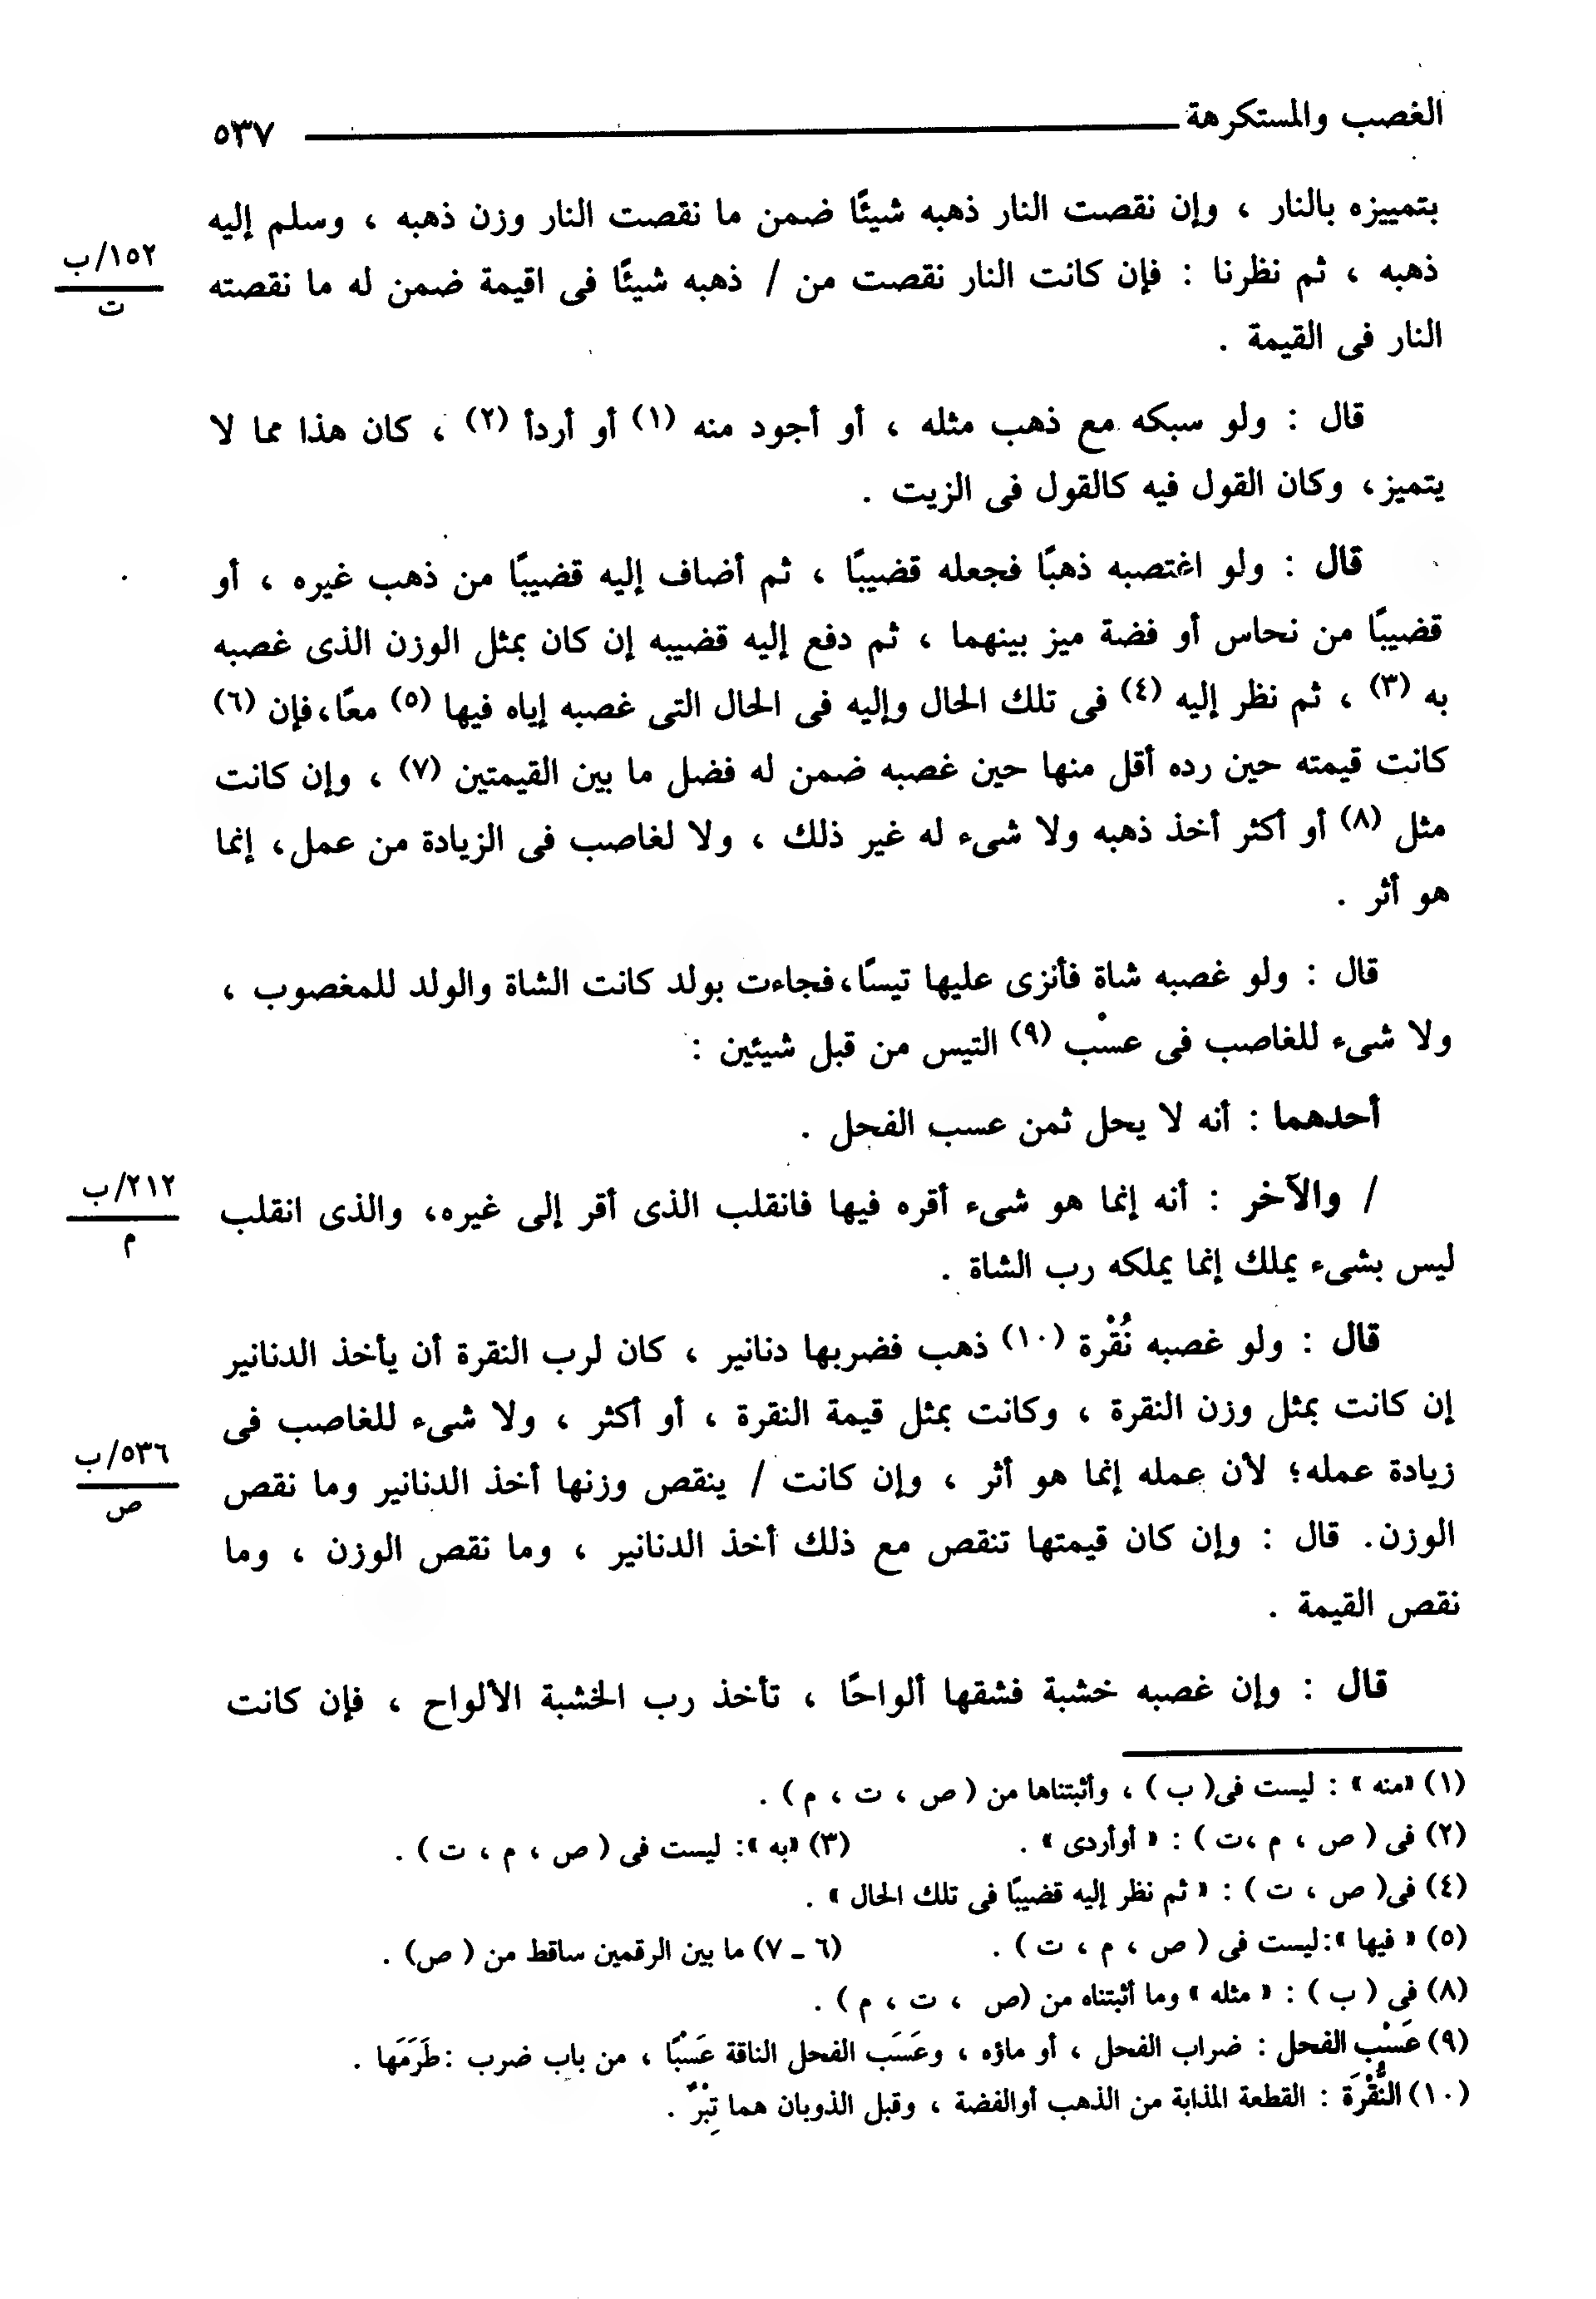 الغصب والمستكرهة ٥٣٧
بتمييزه بالنار ، وإن نقصت النار ذهبه شيئًا ضمن ما نقصت النار وزن ذهبه ، وسلم إليه
ذهبه ، ثم نظرنا : فإن كانت النار نقصت من / ذهبه شيئًا فى اقيمة ضمن له ما نقصته
١٥٢/ب
ت
النار فى القيمة .
قال : ولو سبكه مع ذهب مثله ، أو أجود منه (١) أو أردأ (٢) ، كان هذا مما لا
يتميز، وكان القول فيه كالقول فى الزيت .
قال : ولو اغتصبه ذهبًا فجعله قضيبًا ، ثم أضاف إليه قضيبًا من ذهب غيره ، أو
قضيبًا من نحاس أو فضة ميز بينهما ، ثم دفع إليه قضيبه إن كان بمثل الوزن الذى غصبه
به (٣) ، ثم نظر إليه (٤) فى تلك الحال وإليه فى الحال التى غصبه إياه فيها (٥) معًا،فإن (٦)
كانت قيمته حين رده أقل منها حين غصبه ضمن له فضل ما بين القيمتين (٧) ، وإن كانت
مثل (٨) أو أكثر أخذ ذهبه ولا شىء له غير ذلك ، ولا لغاصب فى الزيادة من عمل، إنما
هو أثر .
قال : ولو غصبه شاة فأنزى عليها تيسًا،فجاءت بولد كانت الشاة والولد للمغصوب ،
ولا شىء للغاصب فى عسْب (٩) التيس من قبل شيئين :
أحدهما : أنه لا يحل ثمن عسب الفحل .
/ والآخر : أنه إنما هو شىء أقره فيها فانقلب الذى أقر إلى غيره، والذى انقلب
٢١٢/ب
م
ليس بشىء يملك إنما يملكه رب الشاة .
قال : ولو غصبه نُقْرة (١٠) ذهب فضربها دنانير ، كان لرب النقرة أن يأخذ الدنانير
إن كانت بمثل وزن النقرة ، وكانت بمثل قيمة النقرة ، أو أكثر ، ولا شىء للغاصب فى
زيادة عمله؛ لأن عمله إنما هو أثر ، وإن كانت / ينقص وزنها أخذ الدنانير وما نقص
٥٣٦/ب
ص
الوزن. قال : وإن كان قيمتها تنقص مع ذلك أخذ الدنانير ، وما نقص الوزن ، وما
نقص القيمة .
قال : وإن غصبه خشبة فشقها ألواحًا ، تأخذ رب الخشبة الألواح ، فإن كانت
(١) «منه » : ليست فى( ب ) ، وأثبتناها من ( ص ، ت ، م ) .
(٢) فى ( ص ، م ،ت ) : « أوأردى » . (٣) «به »: ليست فى ( ص ، م ، ت ) .
(٤) فى( ص ، ت ) : « ثم نظر إليه قضيبًا فى تلك الحال » .
(٥) « فيها »:ليست فى ( ص ، م ، ت ) . (٦ ـ ٧) ما بين الرقمين ساقط من ( ص) .
(٨) فى ( ب ) : « مثله » وما أثبتناه من (ص ، ت ، م ) .
(٩) عَسْب الفحل : ضراب الفحل ، أو ماؤه ، وعَسَب الفحل الناقة عَسْبًا ، من باب ضرب :طَرَمَها .
(١٠) النُّقْرَة : القطعة المذابة من الذهب أوالفضة ، وقبل الذوبان هما تِبْرٌ .